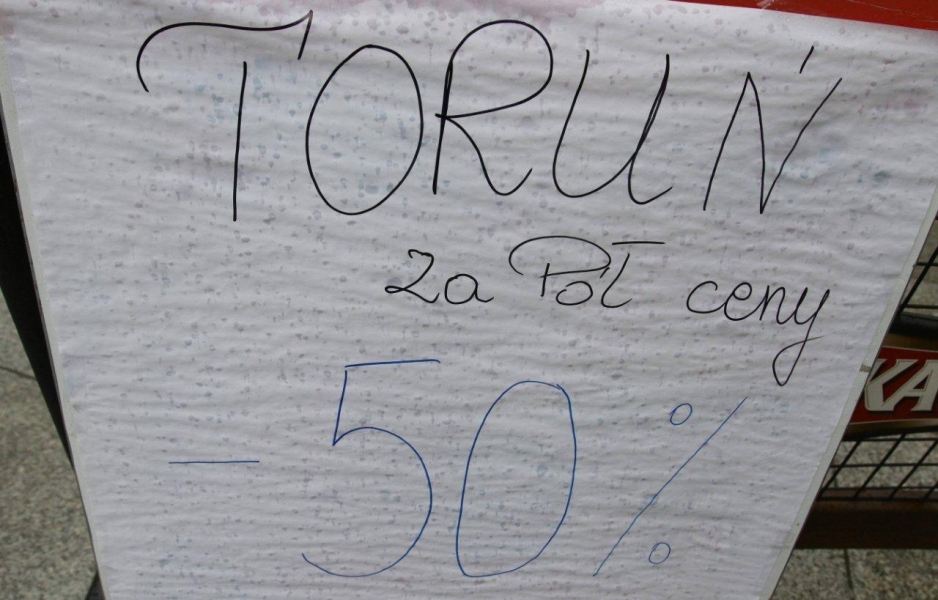 TORUŃ
za Pół ceny
– 50 %
KA